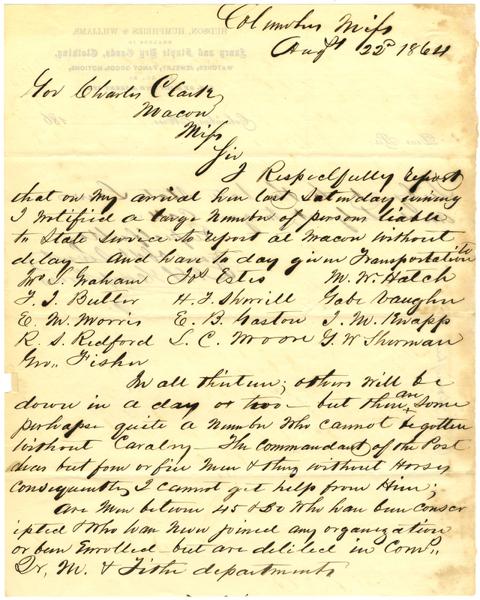 Columbus Miss
Augt 22d 1864
Gov Charles Clark
Macon
Miss
Sir
I Respectfully report
that on my arrival here last Saturday evening
I notified a large number of persons liable
to State service to report at Macon without
delay - And have to day given Transportation to
Wm S. Graham Jos Estes M. W. Hatch
F. J. Butler H. F. Sherrill Gabe Vaughn
E. M. Morris E. B. Gaston J. M. Knapp
R. S. Redford L. C. Moore G. W. Sherman
Geo. Fisher
In all thirteen; others will be
down in a day or two - but there are some
perhapse quite a number who cannot be gotten
without Cavalry - The Commandant of the Post
has but four or five men & they without Horses
Consequently I cannot get help from Him;
Are Men between 45 & 50 who have been conscr
ipted & who have never joined any organization
or been Enrolled - but are detailed in Com.,
Qr. M. & Tithe departments
HUDSON, HUMPHRIES & WILLIAMS,
Fancy and Staple Dry Goods, Clothing,
WATCHES, JEWELRY, FANCY GOODS, NOTIONS,
186